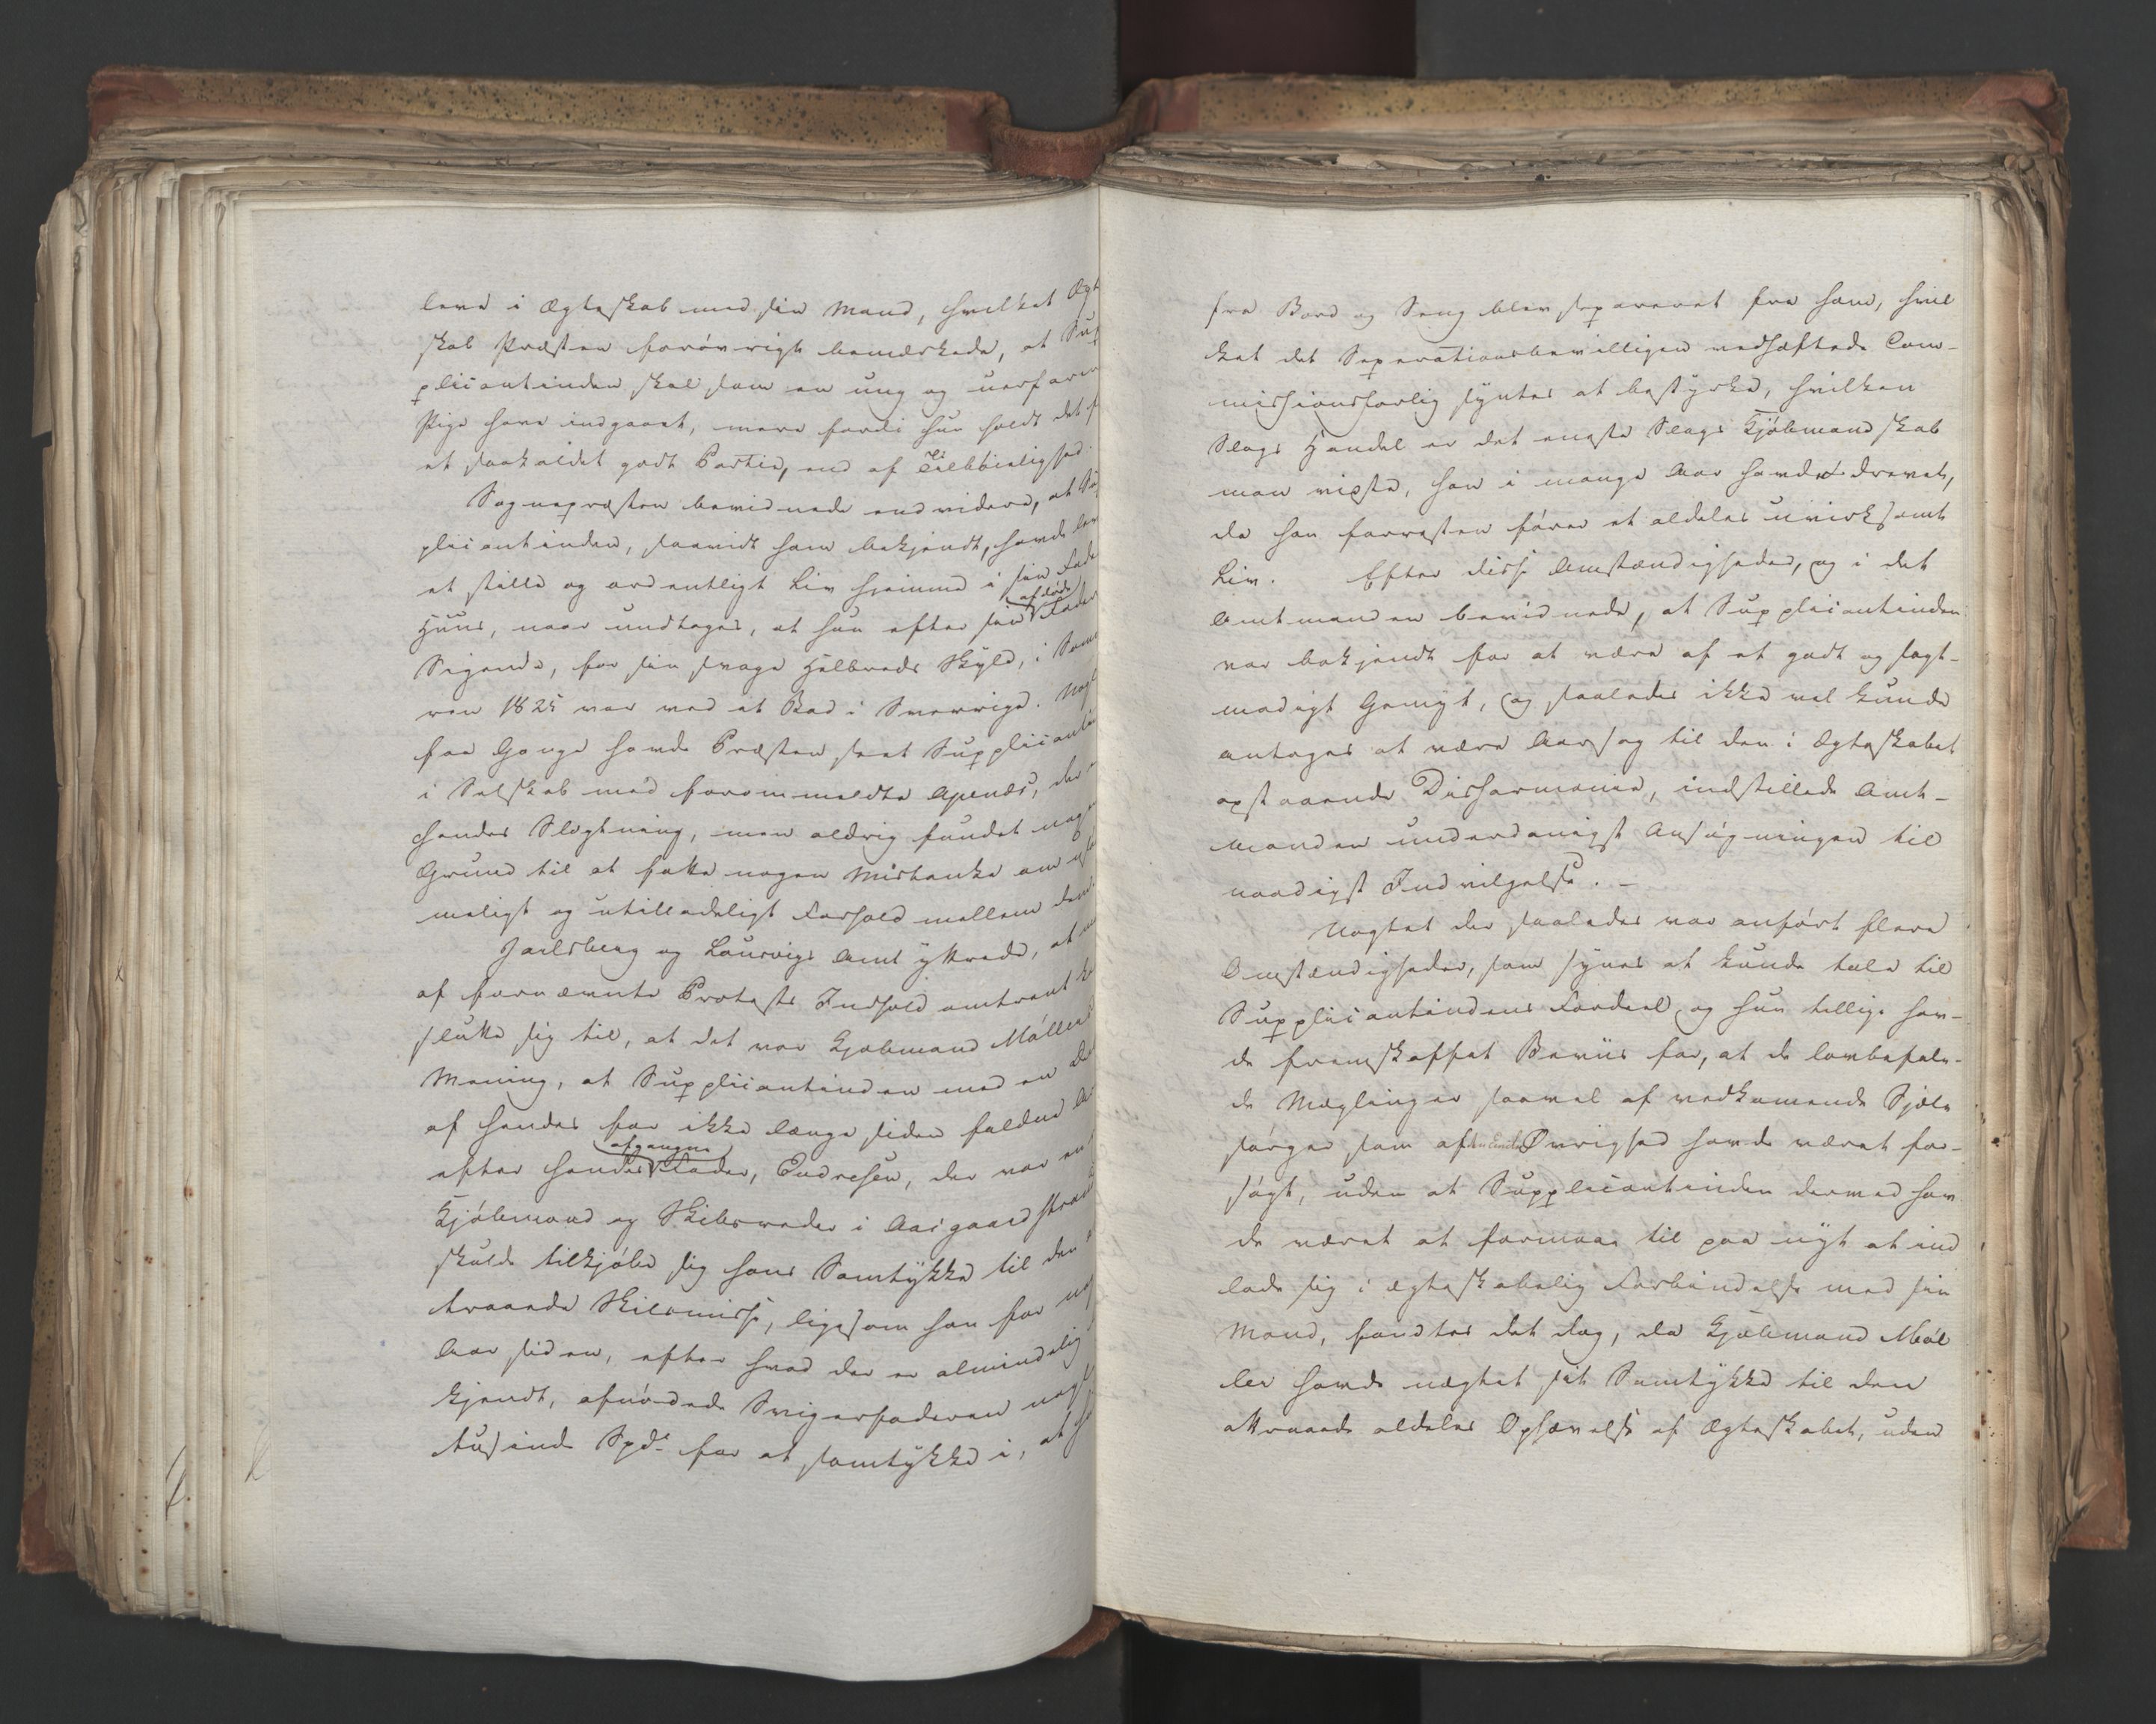 leve i Ægteskab med sin Mand, hvilket Ægt
skab Præsten forövrigt bemærkede, at Sup
plicantinden skal som en ung og uerfaren
Pige have indgaaet, mere fordi hun holdt det f
et saakaldet godt Partie, end af Tilbøielighed.
Sognepræsten bevidnede endvidere, at Sup
plicantinden, saavidt ham bekjendt, havde lev
et stille og ordentligt Liv hjemme i sin Fade
Huus, naar undtages, at hun efter sin afdöde Fader
Sigende, for sin svage Helbreds Skyld, i Som
ren 1825 var ved et Bad i Sverrige. Nogl
faa Gange havde Præsten seet Supplicantin
i Selskab med forommeldte Apenæs, der
hendes Slægtning, men aldrig fundet nog
Grund til at fatte nogen Mistanke om
meligt og utilladeligt Forhold mellem dem.
Jarlsberg og Laurvigs Amt yttrede, at
af fornævnte Protests Indhold omtrent
slutte sig til, at det var Kjøbmand Möllers
Mening, at Supplicantinden med en De
af hendes for ikke længe siden faldne A
efter hendes afgangne Fader, Endresen, der var en
Kjöbmand og Skibsreder i Aasgaardstrand
skulde tilkjöbe sig hans Samtykke til den a
traaede Skilsmisse, ligesom han for no
Aar siden, efter hvad der er almindelig
kjendt, afnödede Svigerfaderen nogl
tusinde Spd. for at samtykke i, at h
fra Bord og Seng blev separeret fra ham, hvil
ket det Separationsbevilligen vedhæftede Com-
missionsforlig syntes at bestyrke, hvilken
Slags Handel er det eneste Slags Kjöbmandskab
man vidste, han i mange Aar havde drevet,
da han forresten förer et aldeles uvirksomt
Liv. Efter disse Omstændigheder, og i det
Amtmanden bevidnede, at Supplicantinden
var bekjendt for at være af et godt og sagt-
modigt Gemyt, og saaledes ikke vel kunde
antages at være Aarsag til den i Ægteskabet
opstaaende Disharmonie, indstillede Amt-
manden underdanigst Ansögningen til
naadigst Indvilgelse. -
Uagtet der saaledes var anfört flere
Omstændigheder, som synes at kunde tale til
Supplicantindens Fordeel, og hun tillige hav-
de fremskaffet Beviis for, at de lovbefale-
de Mæglinger saavel af vedkommende Sjæle
sörger som af Øvrighed havde været for-
sögt, uden at Supplicantinden dermed hav
de været at formaae til paa nyt at ind
lade sig i ægteskabelig Forbindelse med sin
Mand, fandtes det dog, da Kjøbmand Möl
ler havde nægtet sit Samtykke til den
attraaede aldeles Ophævelse af Ægteskabet, uden